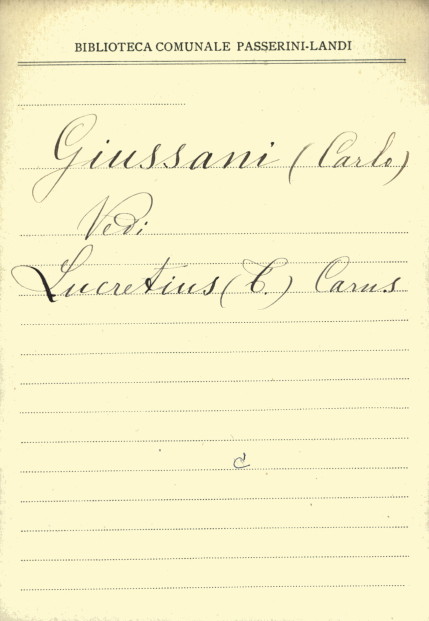 BIBLIOTECA COMUNALE PASSERINI-LANDI
Giussani (Carlo)
Vedi
Lucretius (T.) Carus